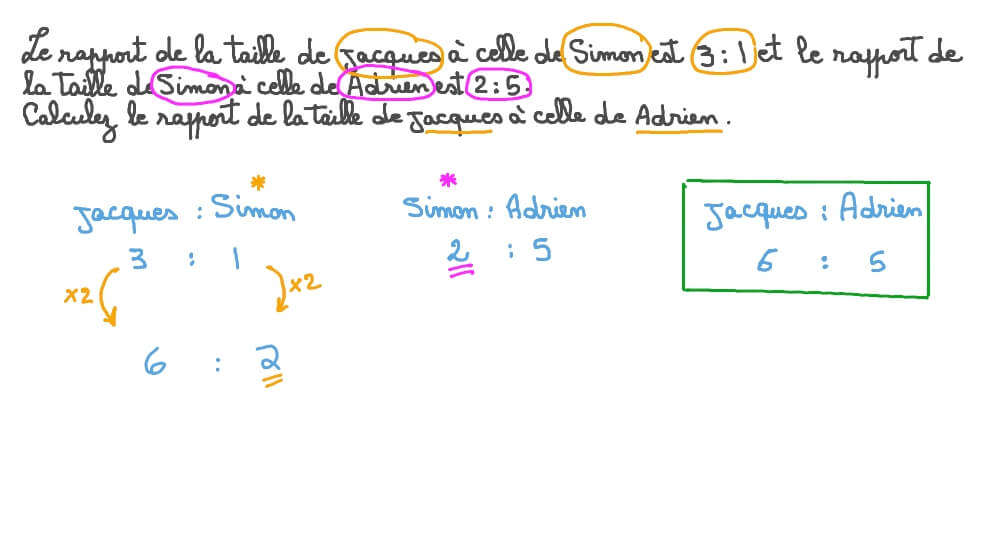 Le rapport de la taille de Jacques à celle de Simon est 3:1 et le rapport de
la taille de Simon à celle de Adrien est 2:5.
Calculez le rapport de la taille de Jacques à celle de Adrien.
* *
Jacques : Simon Simon : Adrien Jacques : Adrien
3 : 1 2 : 5 6 : 5
x2 x2
6 : 2